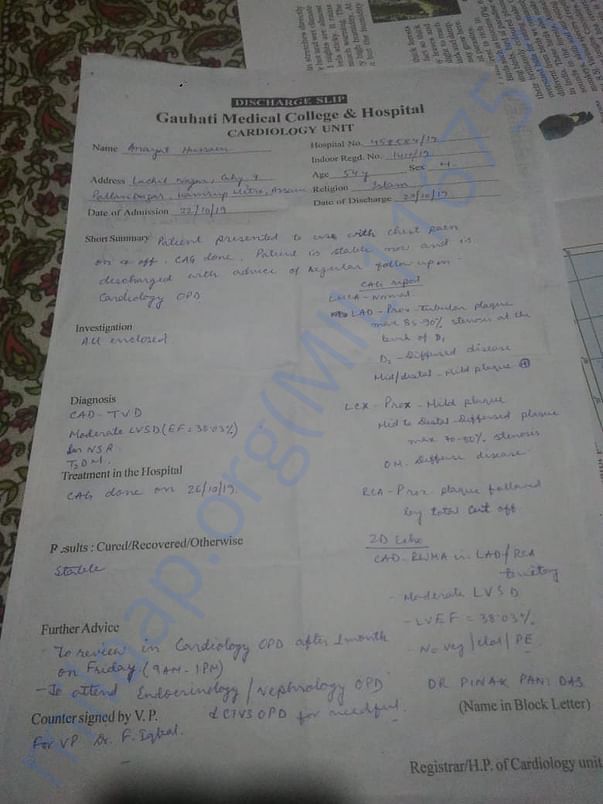 DISCHARGE SLIP
Gauhati Medical College & Hospital
CARDIOLOGY UNIT
Name Hussain
Hospital No.
Indoor Regd. No.
Age 54y Sex M.
Address Lachit Nagar,
Kamrup Metro, Assam
Religion Islam
Date of Admission 22/10/19
Date of Discharge
Short Summary Patient presented to us with chest pain
on & off. CAG done. Patient is stable now and is
discharged with advice of regular follow up on
Cardiology OPD
CAG report
LMCA - Normal
LAD - Prox - tubular plaque
max 85-90% stenosis at the
level of D1
D2 - Diffused disease
Mid/distal - Mild plaque
Investigation
All enclosed
Diagnosis
CAD - TVD
Moderate LVSD (EF = 38.03%)
in NSR
T2DM
LCX - Prox - Mild plaque
Mid to Distal - Diffused plaque
max 70-80% stenosis
OM - Diffuse disease
Treatment in the Hospital
CAG done on 26/10/19.
RCA - Prox - plaque followed
by total cut off
: Cured/Recovered/Otherwise
Stable
2D Echo
CAD - RWMA in LAD/RCA
territory
- Moderate LVSD
- LVEF = 38.03%
- No veg/clot/PE
Further Advice
- To review in Cardiology OPD after 1 month
on Friday (9AM - 1PM)
- To attend Endocrinology/Nephrology OPD
& CTVS OPD for needful.
DR PINAK PANI DAS
(Name in Block Letter)
Counter signed by V. P.
For VP Dr. F. Iqbal.
Registrar/H.P. of Cardiology unit